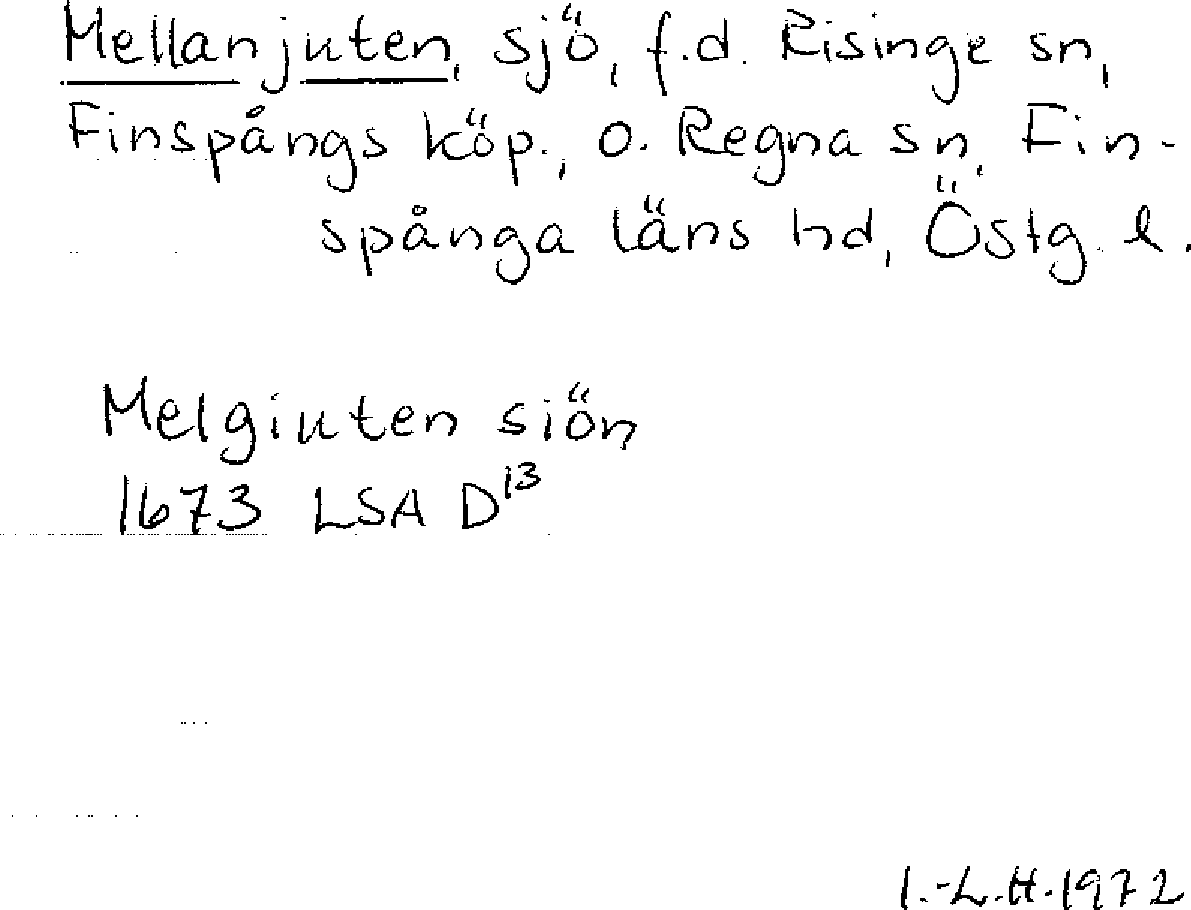 Mellanjuten, sjö, f.d. Risinge sn,
Finspångs köp., o. Regna sn, Fin-
spånga läns hd, Östg. l.
Melgiuten siön
1673 LSA D13
I.-L.H.1972